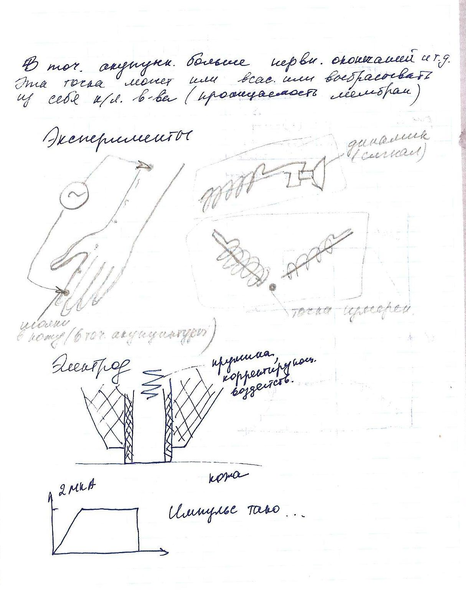 В точ. акупункт. больше нервн. окончаний и т.д.
Эта точка может или всас. или выбрасывать
из себя к/л. в-ва (проницаемость мембран)
Эксперименты
динамик
(сигнал)
~
точка измерен
иголки
в кожу (в точ. акупунктуры)
Электрод
пружина,
корректирующ.
воздейств.
кожа
2 мкА
Импульс тако ...